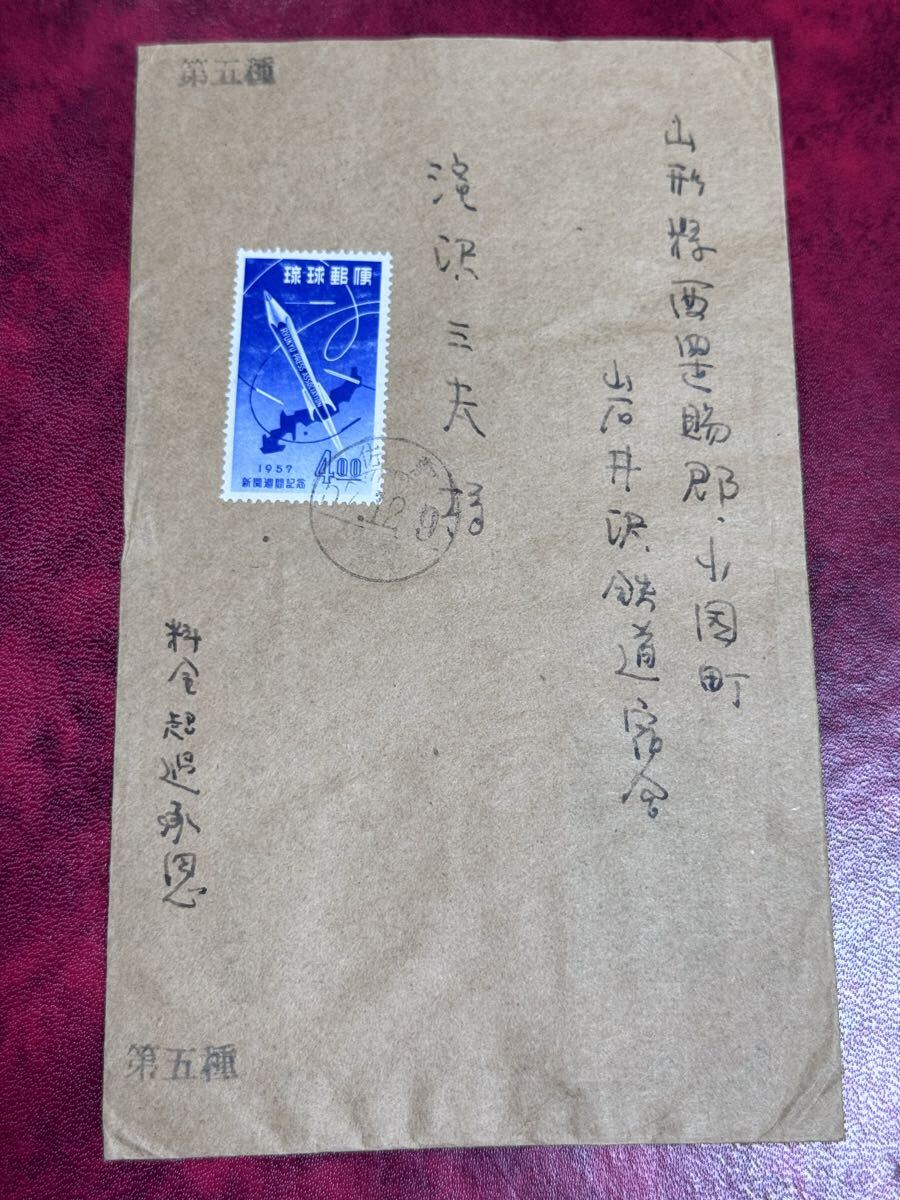 第五種
山形縣西置賜郡・小国町
岩井沢鉄道宿舎
滝沢三夫様
琉球郵便
RYUKYU PRESS ASSOCIATION
1957
4.00
新聞週間記念
12. 9
料金超過承恩
第五種